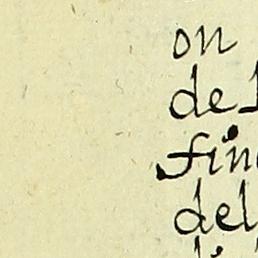 on
de
fin
del